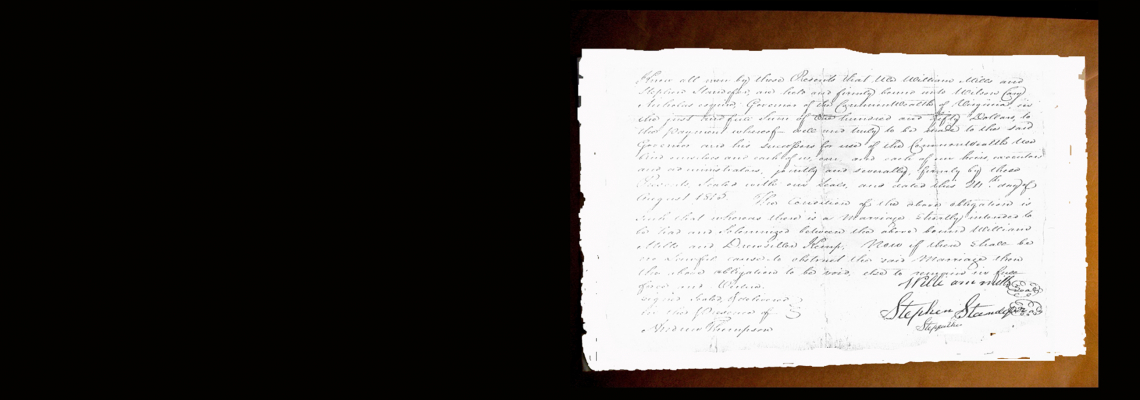 Know all men by these Presents that We William Mills and
Stephen Standefer, are held and firmly bound unto Wilson Cary
Nicholas esquire, Governor of the Commonwealth of Virginia, in
the just and full Sum of One hundred and fifty Dollars, to
the payment whereof well and truly to be made to the said
Governor and his successors for use of the Commonwealth We
bind ourselves and each of us, our, and each of our heirs, executors
and administrators, jointly and severally, firmly by these
Presents, Sealed with our Seals, and dated this day of
August The Condition of the above obligation is
such that whereas there is a Marriage Shortly intended to
be had and Solemnized between the above bound William
Mills and Kemp. Now if there Shall be
no Lawful cause to obstruct the said Marriage then
the above obligation to be void, else to remain in full
force and Virtue.
Signed Sealed & delivered
in the Presence of
Andrew Thompson
William Mills Seal
Stephen Standefer Seal
Stepfather